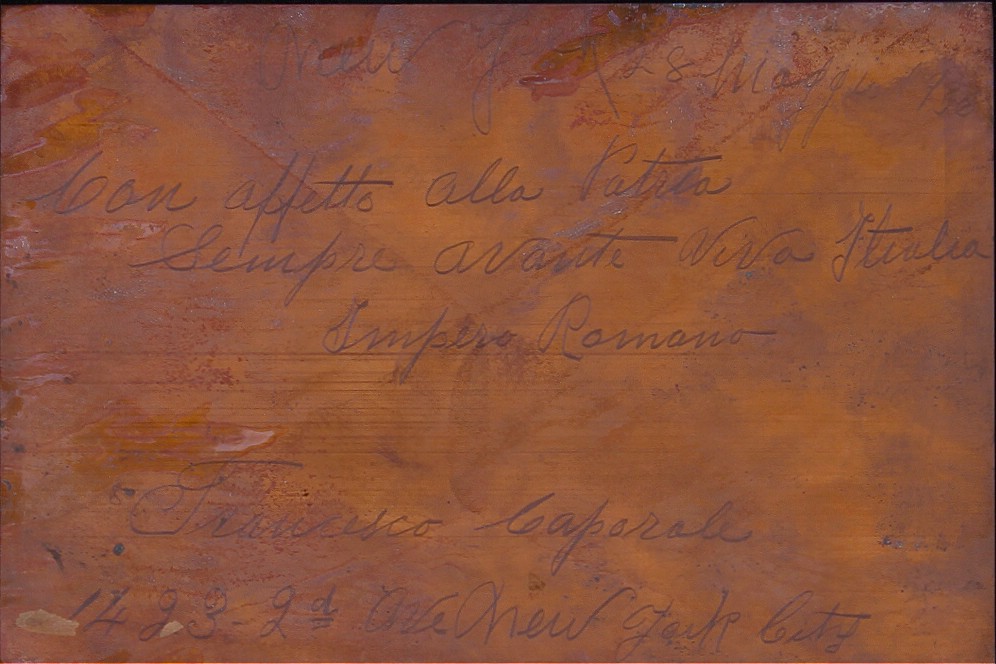 New York 28 Maggio
Con affetto alla Patria
Sempre avante Viva Itealia
Impero Romano
Francesco Caporale
1423-2d Ave New York City